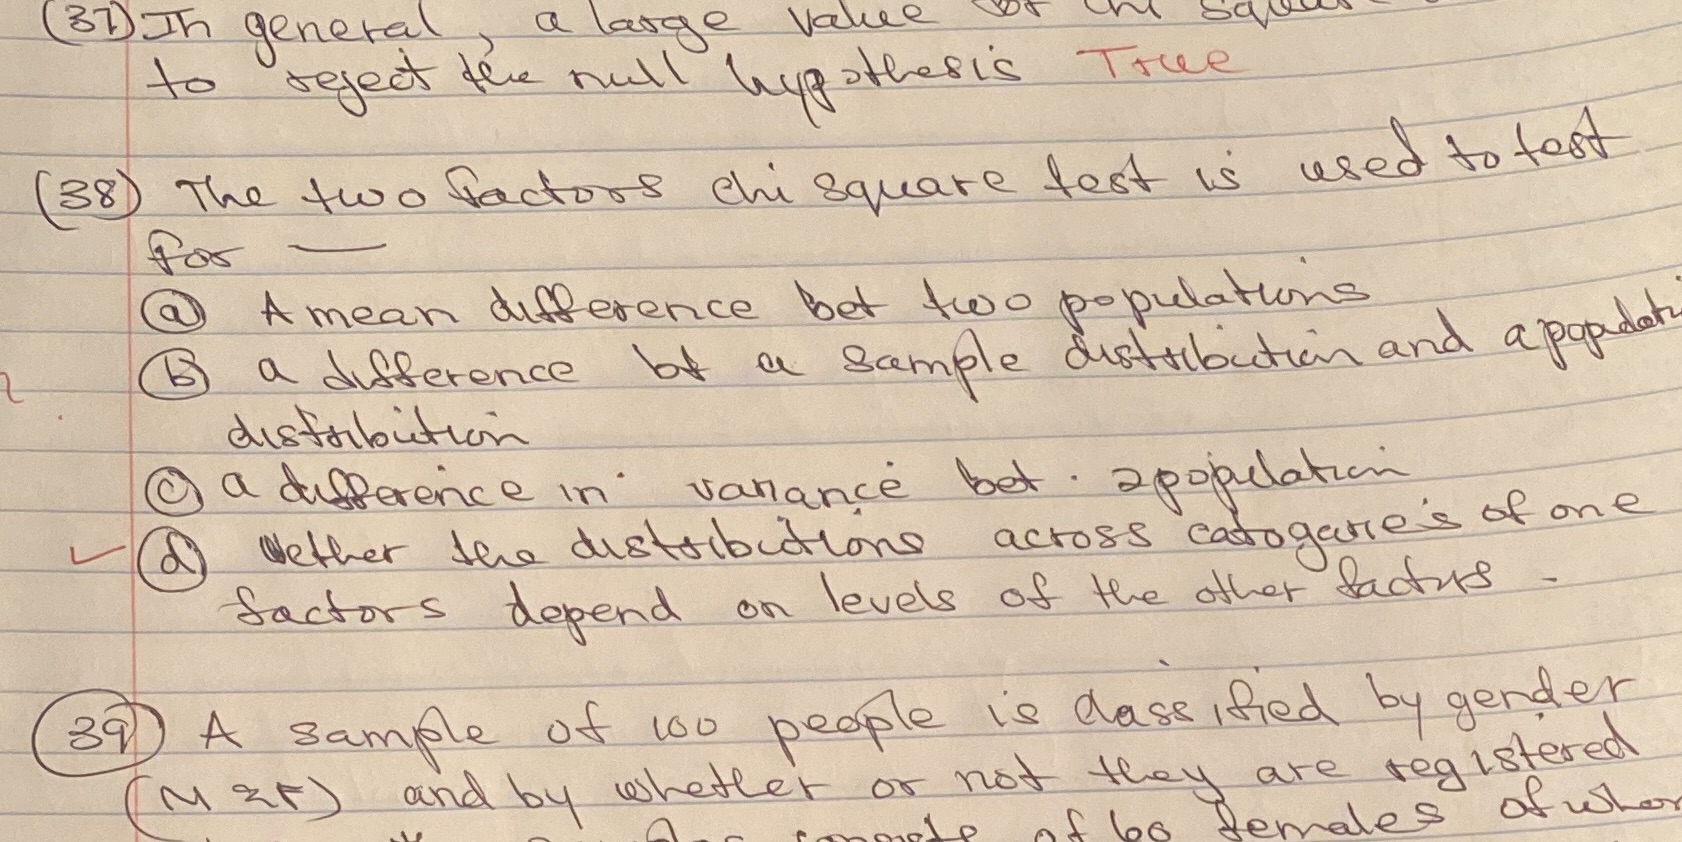 (37) In general, a large value of chi square
to reject the null hypothesis True
(38) The two factors chi square test is used to test
for —
(a) A mean difference bet two populations
(B) a difference bt a sample distribution and a populati
distribution
(c) a difference in variance bet. 2 population
(d) wether the distributions across catogaries of one
factors depend on levels of the other factors -
(39) A sample of 100 people is classified by gender
(M & F) and by whether or not they are registered
of 60 females of whom